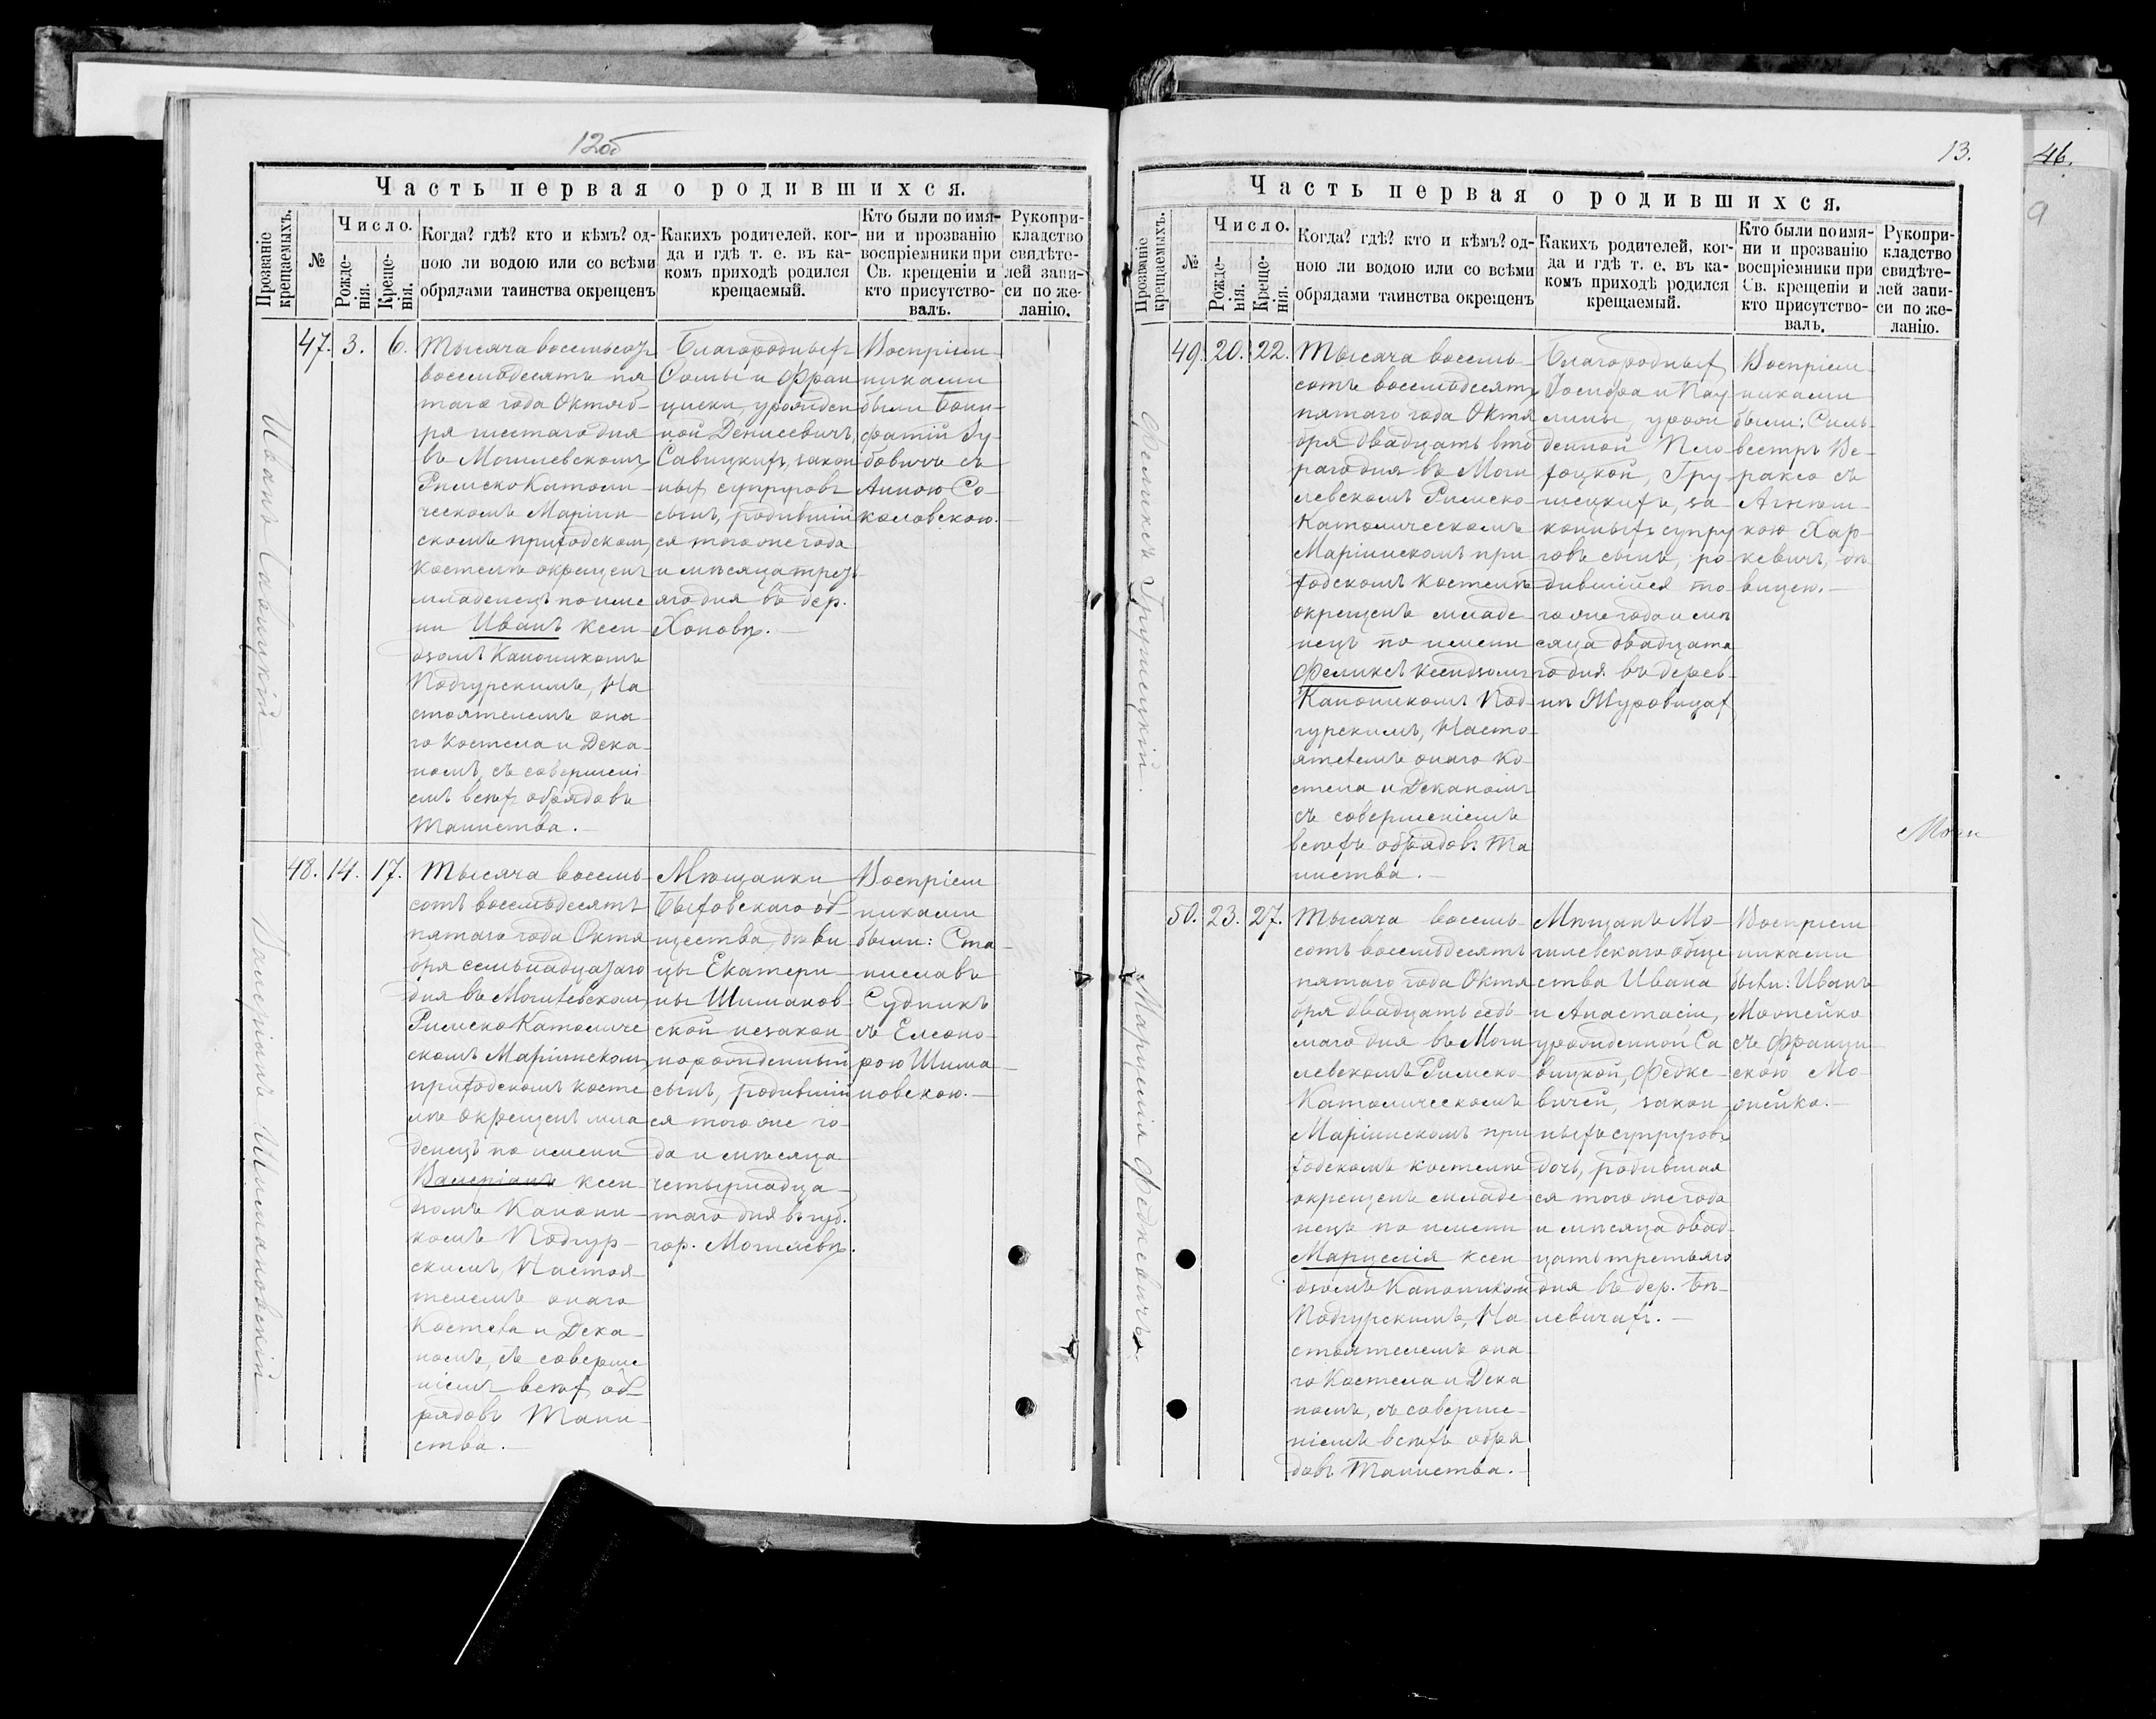 12об
Часть первая о родившихся.
Прозваніе крещаемыхъ.
№
Число.
Рожденія.
Крещенія.
Когда? гдѣ? кто и кѣмъ? од-
ною ли водою или со всѣми
обрядами таинства окрещенъ
Какихъ родителей, ког-
да и гдѣ т. е. въ ка-
комъ приходѣ родился
крещаемый.
Кто были по имя-
ни и прозванію
воспріемники при
Св. крещеніи и
кто присутство-
валъ.
Рукопри-
кладство
свидѣте-
лей запи-
си по же-
ланію.
Иванъ Савицкій
47. 3. 6.
Тысяча восемьсотъ
восемьдесятъ пя
таго года Октяб-
ря шестаго дня
въ Могилевскомъ
Римско Католи-
ческомъ Маріин-
скомъ приходском
костелѣ окрещенъ
младенецъ по име
ни Иванъ ксен-
дзомъ Каноникомъ
Подгурскимъ, На
стоятелемъ она-
го Костела и Дека-
номъ, съ совершені-
емъ всѣхъ обрядовъ
Таинства.
Благородныхъ
Сомы и Фран
циски, урожден
ной Денисевичъ,
Савицкихъ, закон
ныхъ супруговъ
сынъ, родивший
ся того же года
и мѣсяца треть
яго дня въ дер.
Хоновѣ.
Воспріем-
никами
были Бони-
фатій Ду-
бовичъ съ
Анною Со-
коловскою.
Валеріанъ Шимановскій
48. 14. 17.
Тысяча восемь-
сотъ восемьдесятъ
пятаго года Октя
бря семьнадцатаго
дня въ Могилевском
Римско Католиче
скомъ Маріинском
приходскомъ косте
лѣ окрещенъ мла
денецъ по имени
Валеріанъ ксен-
дзомъ Канони-
комъ Подгур-
скимъ, Настоя-
телемъ онаго
Костела и Дека-
номъ, съ соверше
ніемъ всѣхъ об-
рядовъ Таин-
ства.
Мѣщанки
Быховскаго об-
щества, дѣви
цы Екатери-
ны Шиманов-
ской незакон
норожденный
сынъ, родивший
ся того же го-
да и мѣсяца
четырнадца-
таго дня въ губ.
гор. Могилевѣ.
Воспріем
никами
были: Ста-
ниславъ
Судникъ
съ Елеоно-
рою Шима-
новскою.
13.
46.
9
Часть первая о родившихся.
Прозваніе крещаемыхъ.
№
Число.
Рожденія.
Крещенія.
Когда? гдѣ? кто и кѣмъ? од-
ною ли водою или со всѣми
обрядами таинства окрещенъ
Какихъ родителей, ког-
да и гдѣ т. е. въ ка-
комъ приходѣ родился
крещаемый.
Кто были по имя-
ни и прозванію
воспріемники при
Св. крещеніи и
кто присутство-
валъ.
Рукопри-
кладство
свидѣте-
лей запи-
си по же-
ланію.
Феликсъ Грушецкій.
49. 20. 22.
Тысяча восемь-
сотъ восемьдесятъ
пятаго года Октя
бря двадцать вто
раго дня въ Моги
левскомъ Римско-
Католическомъ
Маріинскомъ при
ходскомъ костелѣ
окрещенъ младе
нецъ по имени
Феликсъ ксендзомъ
Каноникомъ Под-
гурскимъ, Насто-
ятелемъ онаго Ко
стела и Деканомъ
съ совершеніемъ
всѣхъ обрядовъ Та
инства.
Благородныхъ
Іосифа и Пау
лины, урож
денной
Гру-
шецкихъ, за-
конныхъ супру
говъ сынъ, ро
дившійся то-
го же года и мѣ
сяца двадцата
го дня въ дерев-
нѣ Журовицах
Воспріем-
никами
были: Силь-
вестръ Ве-
раксо съ
Агнеш-
кою Хар-
кевичъ, дѣ
вицею.
Моги
Марцелія Федкевичъ.
50. 23. 27.
Тысяча восемь-
сотъ восемьдесятъ
пятаго года Октя
бря двадцать седь-
маго дня въ Моги
левскомъ Римско-
Католическомъ
Маріинскомъ при
ходскомъ костелѣ
окрещенъ младе
нецъ по имени
Марцелія ксен-
дзомъ Каноником
Подгурскимъ, На
стоятелемъ она-
го Костела и Дека
номъ, съ соверше-
ніемъ всѣхъ обря
довъ Таинства.
Мѣщанъ Мо-
гилевскаго обще
ства Ивана
и Анастасіи,
урожденной Са
вицкой, Федке-
вичей, закон-
ныхъ супруговъ
дочь, родившая
ся того же года
и мѣсяца двад-
цать третьяго
дня въ дер. Бѣ-
невичахъ.
Воспріем
никами
были: Иванъ
Можейко
съ Францис-
скою Мо-
жейко.